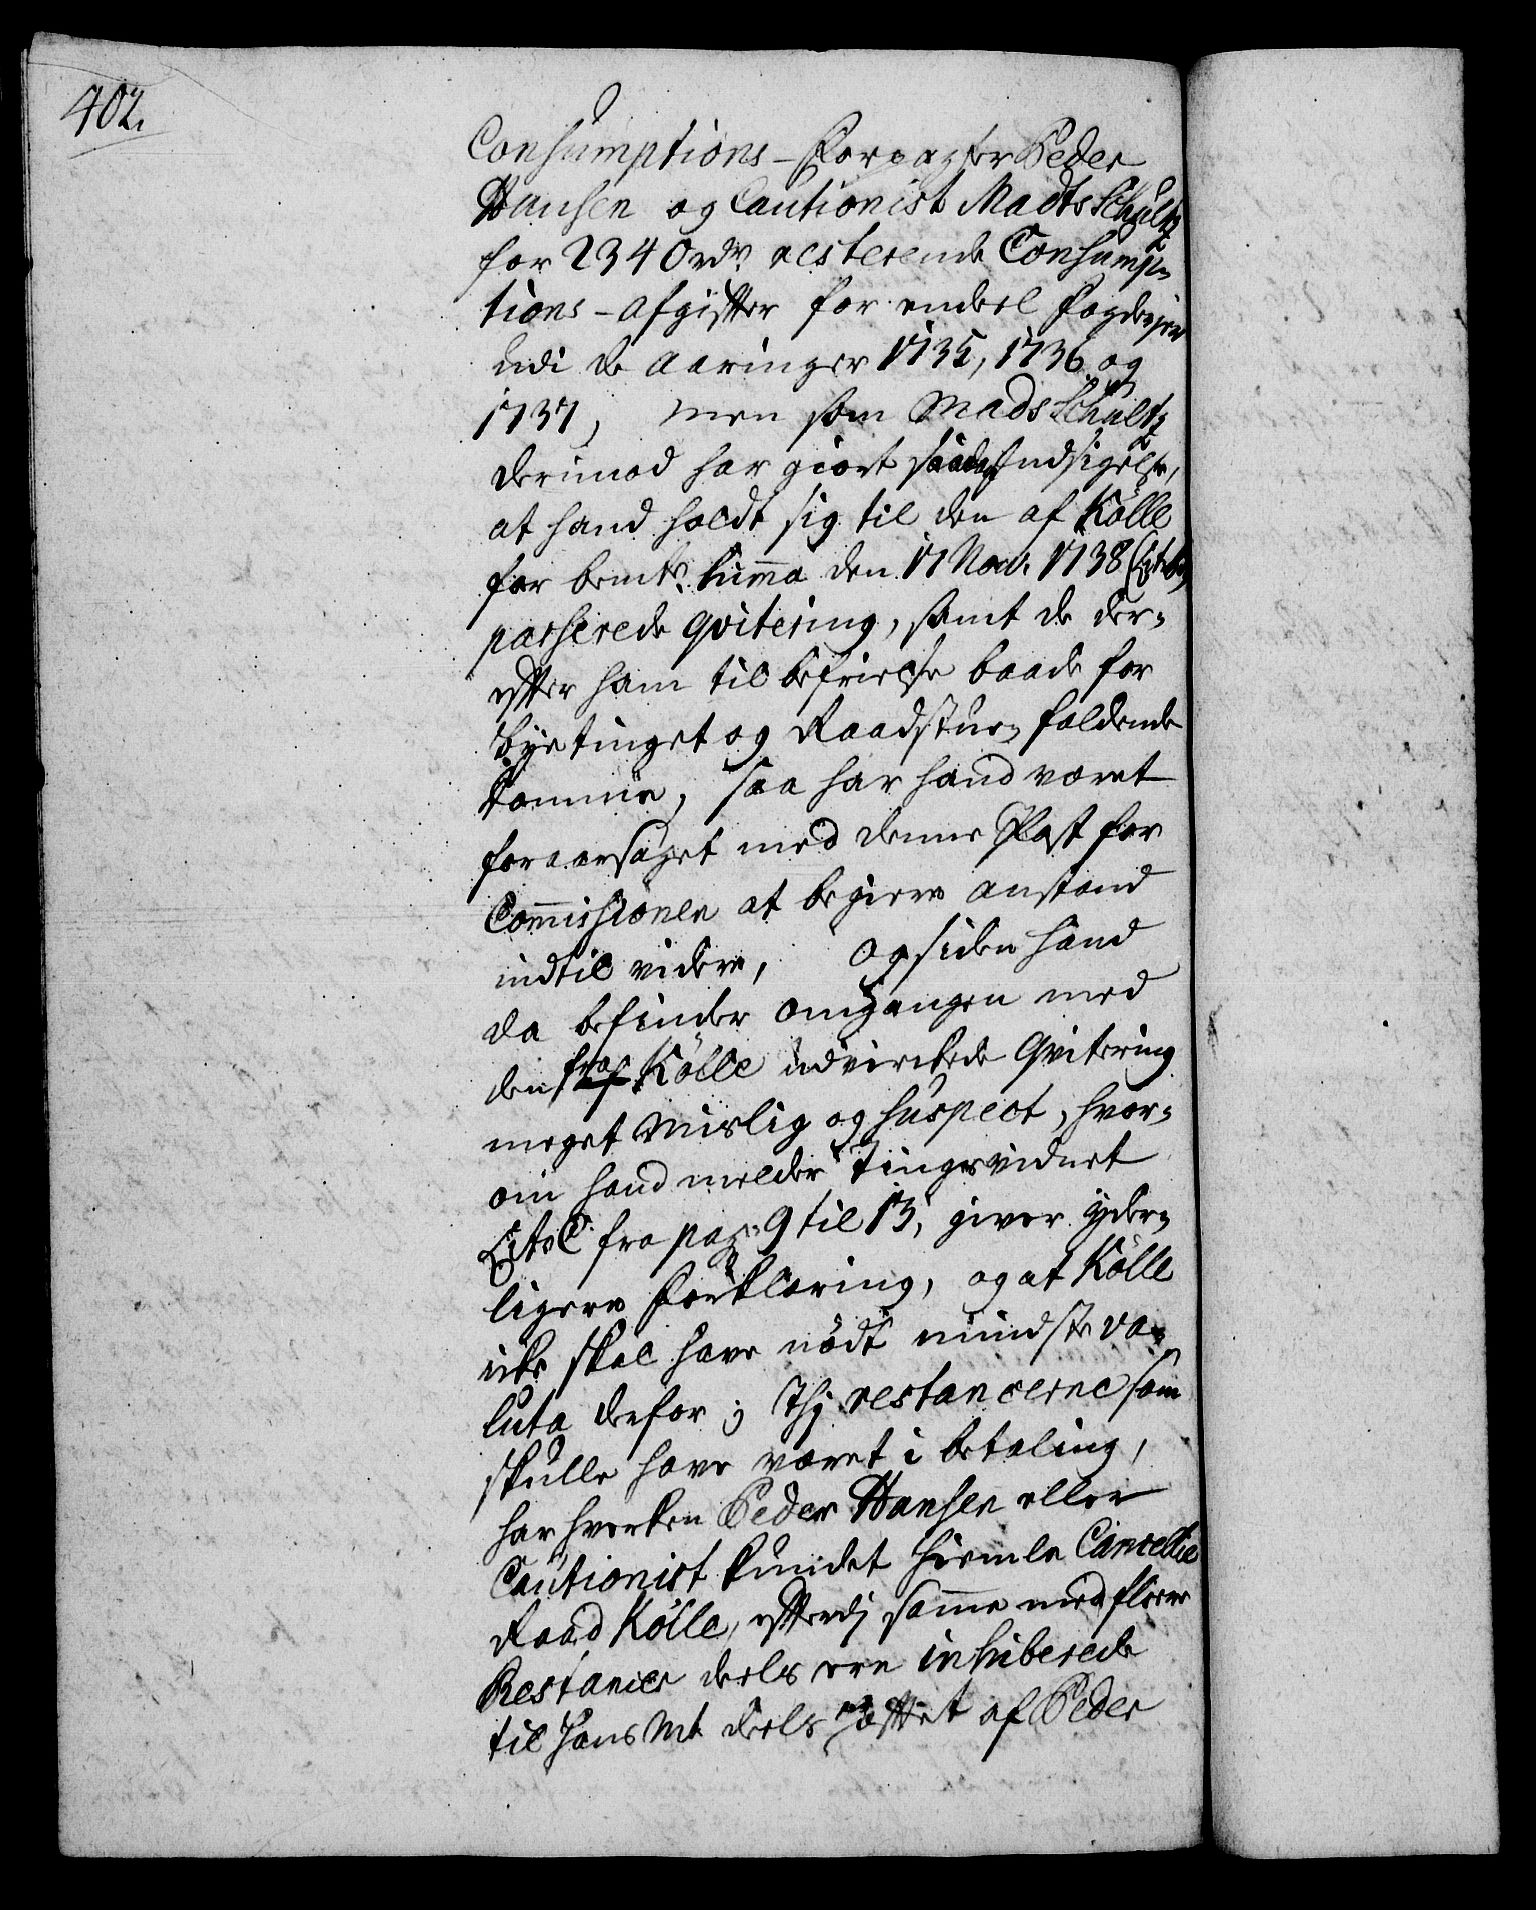 402.
Consumptions-Forpagter Peder
Hansen og Cautionist Madts Schultz
for 2340 rdr. resterende Consump-
tions-afgifter for endeel Fogderjer
udi de Aaringer 1735, 1736 og
1737, men som Mads Schultz
derimod har giort saadan Indsigelse,
at hand holdt sig til den af Kölle
for bemte Summa den 17 Nov. 1738
passerede qvitering, samt de der-
efter ham til befrielse baade for
Byetinget og Raadstue- faldende
Domme, saa har hand været
foraarsaget med denne Post for
Commissionen at begiere anstand
indtil videre, og siden hand
da befinder omgangen med
den fra Kölle udvirckede Qvitering
meget Mislig og suspect, hvor-
om hand melder Tingsvidnet
Lit. C. fra pag. 9 til 13, giver yder-
ligere Forklaring, og at Kölle
icke skal have nödt mindste va-
luta derfor; Thj restancerne som
skulle have været i betaling,
har hverken Peder Hansen eller
Cautionist kundet hiemle Cancellie
Raad Kölle, efterdj samme med fleere
Restancer deels ere inhiberede
til Hans Mt. deels hæftet af Peder